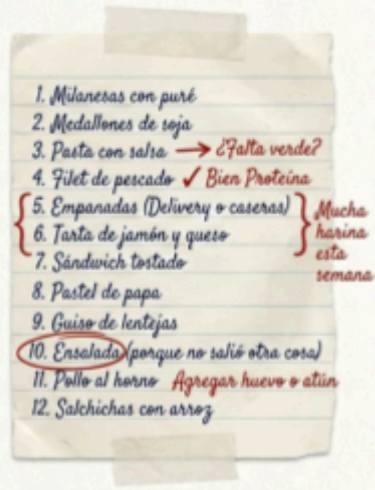 1. Milanesas con puré
2. Medallones de soja
3. Pasta con salsa → ¿Falta verde?
4. Filet de pescado ✓ Bien Proteína
5. Empanadas (Delivery o caseras)
6. Tarta de jamón y queso
7. Sándwich tostado
Mucha
harina
esta
semana
8. Pastel de papa
9. Guiso de lentejas
10. Ensalada (porque no salió otra cosa)
11. Pollo al horno Agregar huevo o atún
12. Salchichas con arroz